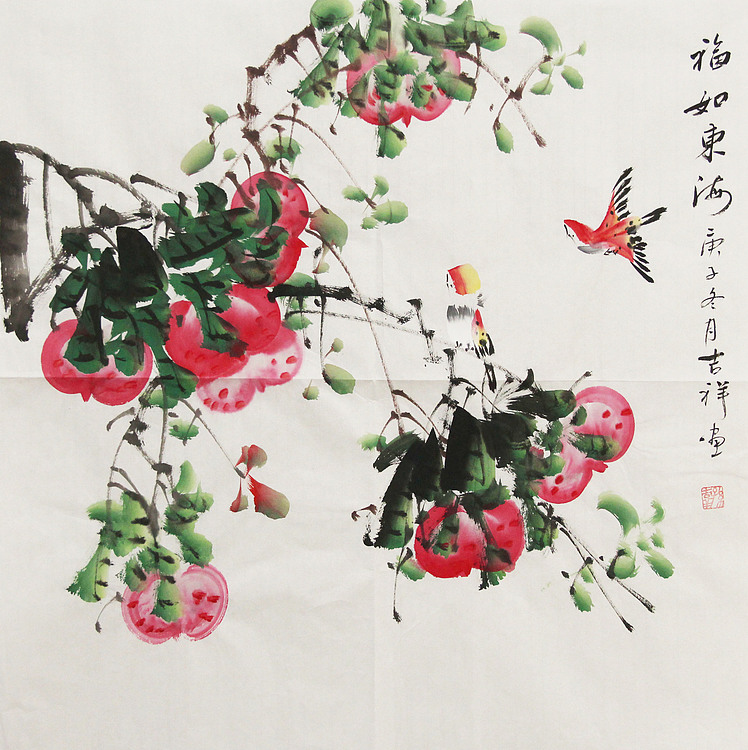 福如东海庚子冬月吉祥画